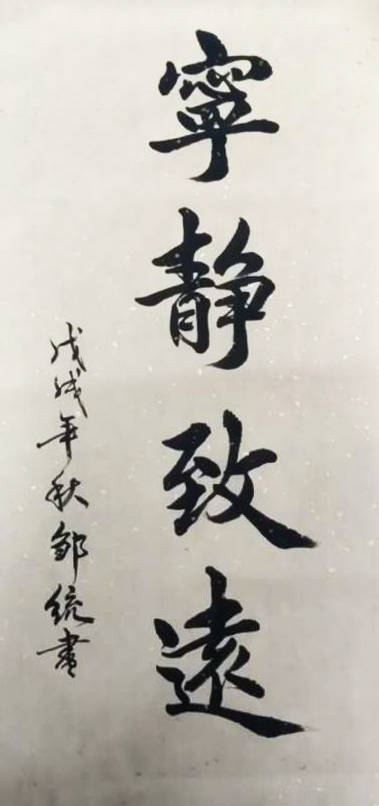 寧靜致遠
戊戌年秋鄒統書